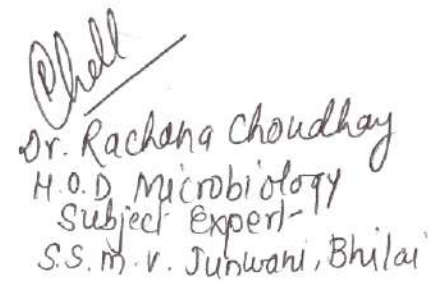 Dr. Rachana Choudhay
H.O.D Microbiology
Subject Expert-
S.S.M.V. Junwani, Bhilai